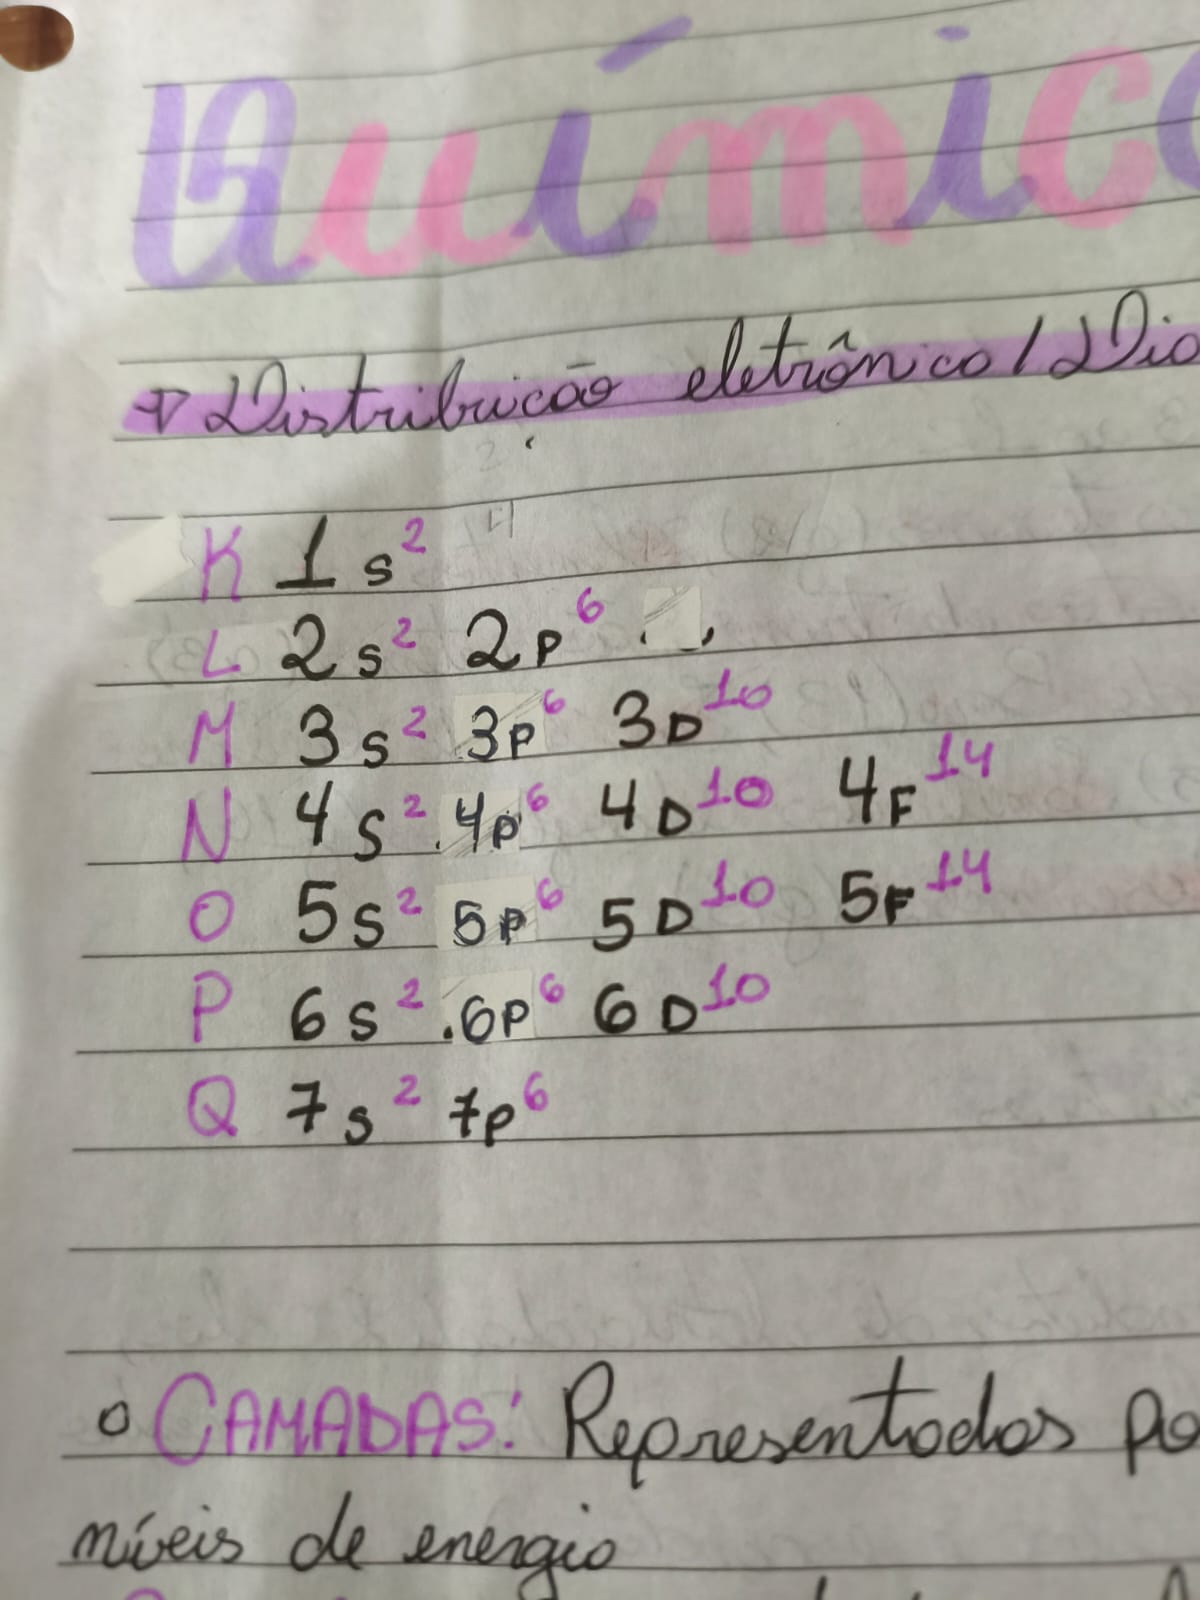 Químic
Distribuição eletrônica / Dia
K 1s²
L 2s² 2p⁶
M 3s² 3p⁶ 3D¹⁰
N 4s² 4p⁶ 4D¹⁰ 4F¹⁴
O 5s² 5p⁶ 5D¹⁰ 5F¹⁴
P 6s² 6p⁶ 6D¹⁰
Q 7s² 7p⁶
CAMADAS: Representados po
níveis de energia